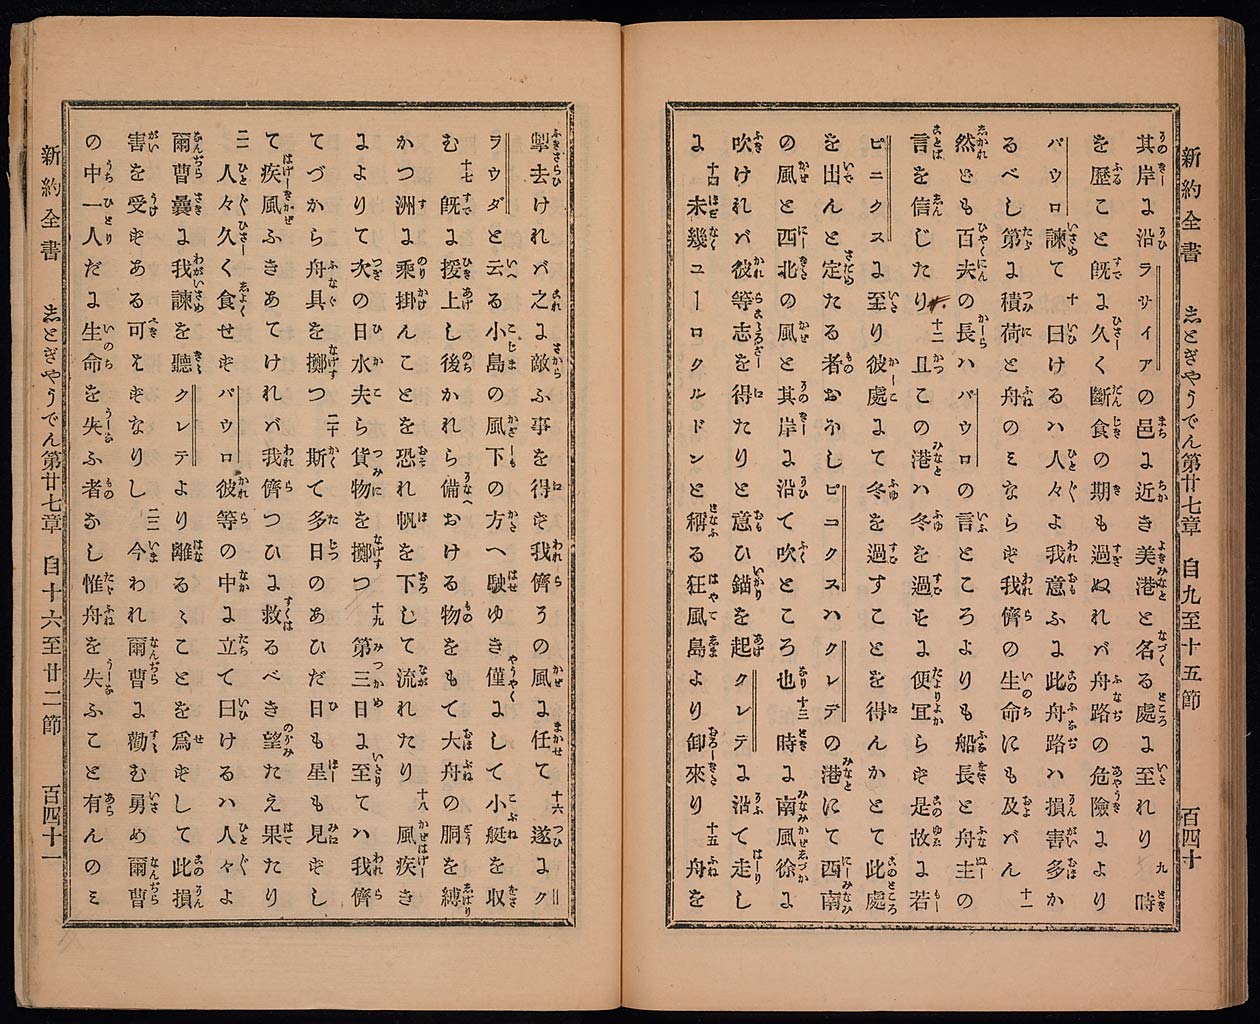 新約全書 志とぎやうでん第廿七章 自九至十五節 百四十
其岸ょ沿ラサイアの邑ょ近き美港と名る處ょ至れり 九 時
を歴こと既ょ久く斷食の期も過ぬれバ舟路の危險ょより
パウロ諫て 十 曰けるハ人々よ我意ふょ此舟路ハ損害多か
るべし第ょ積荷と舟のミならず我儕の生命にも及バん 十一
然ども百夫の長ハパウロの言ところよりも船長と舟主の
言を信じたり 十二 且この港ハ冬を過すょ便宜らず是故ょ若
ピニクスょ至り彼處ょて冬を過すことを得んかとて此處
を出んと定たる者おほしピニクスハクレテの港にて西南
の風と西北の風と其岸ょ沿て吹ところ也 十三 時ょ南風徐ょ
吹けれバ彼等志を得たりと意ひ錨を起クレテょ沿て走し
ょ 十四 未幾ユーロクルドンと稱る狂風島より卸來り 十五 舟を
新約全書 志とぎやうでん第廿七章 自十六至廿二節 百四十一
掣去けれバ之ょ敵ふ事を得ず我儕その風ょ任て 十六 遂ょク
ラウダと云る小島の風下の方へ馳ゆき僅ょして小艇を収
む 十七 既ょ援上し後かれら備おける物をもて大舟の胴を縛
かつ洲ょ乘掛んことを恐れ帆を下して流れたり 十八 風疾き
ょよりて次の日水夫ら貨物を擲つ 十九 第三日ょ至てハ我儕
てづから舟具を擲つ 二十 斯て多日のあひだ日も星も見ずし
て疾風ふきあてけれバ我儕つひょ救るべき望たえ果たり
二一 人々久く食せずパウロ彼等の中ょ立て曰けるハ人々よ
爾曹曩ょ我諫を聽クレテより離るゝことを爲ずして此損
害を受ずある可えずなりし 二二 今われ爾曹ょ勸む勇め爾曹
の中一人だょ生命を失ふ者なし惟舟を失ふこと有んのミ